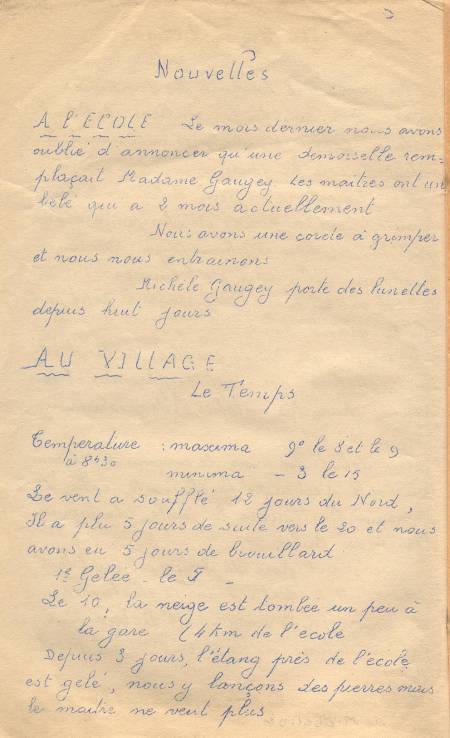 Nouvelles
A L'ECOLE Le mois dernier nous avons
oublié d'annoncer qu'une demoiselle rem-
plaçait Madame Gaugey Les maitres ont un
bébé qui a 2 mois actuellement
Nous avons une corde à grimper
et nous nous entrainons
Michèle Gaugey porte des lunettes
depuis huit jours
AU VILLAGE
Le Temps
Température : maxima 9° le 8 et le 9
à 8h30
minima - 3 le 15
Le vent a soufflé 12 jours du Nord,
Il a plu 5 jours de suite vers le 20 et nous
avons eu 5 jours de brouillard
1e Gelée - le
Le 10, la neige est tombée un peu à
la gare (4km de l'école
Depuis 3 jours, l'étang près de l'école
est gelé, nous y lançons des pierres mais
le maitre ne veut plus